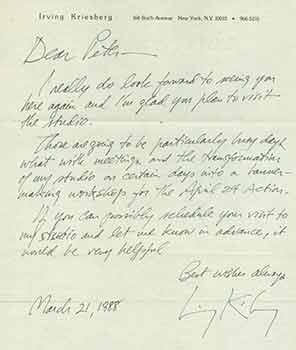 Irving Kriesberg
160 Sixth Avenue New York, N.Y. 10013 • 966-5376
Dear Peter —
I really do look forward to seeing you
here again and I'm glad you plan to visit
the studio.
These are going to be particularly busy days
what with meetings and the transformation
of my studio on certain days into a banner-
making workshop for the April 29 Action.
If you can possibly schedule your visit to
my studio and let me know in advance, it
would be very helpful
Best wishes always
March 21, 1988